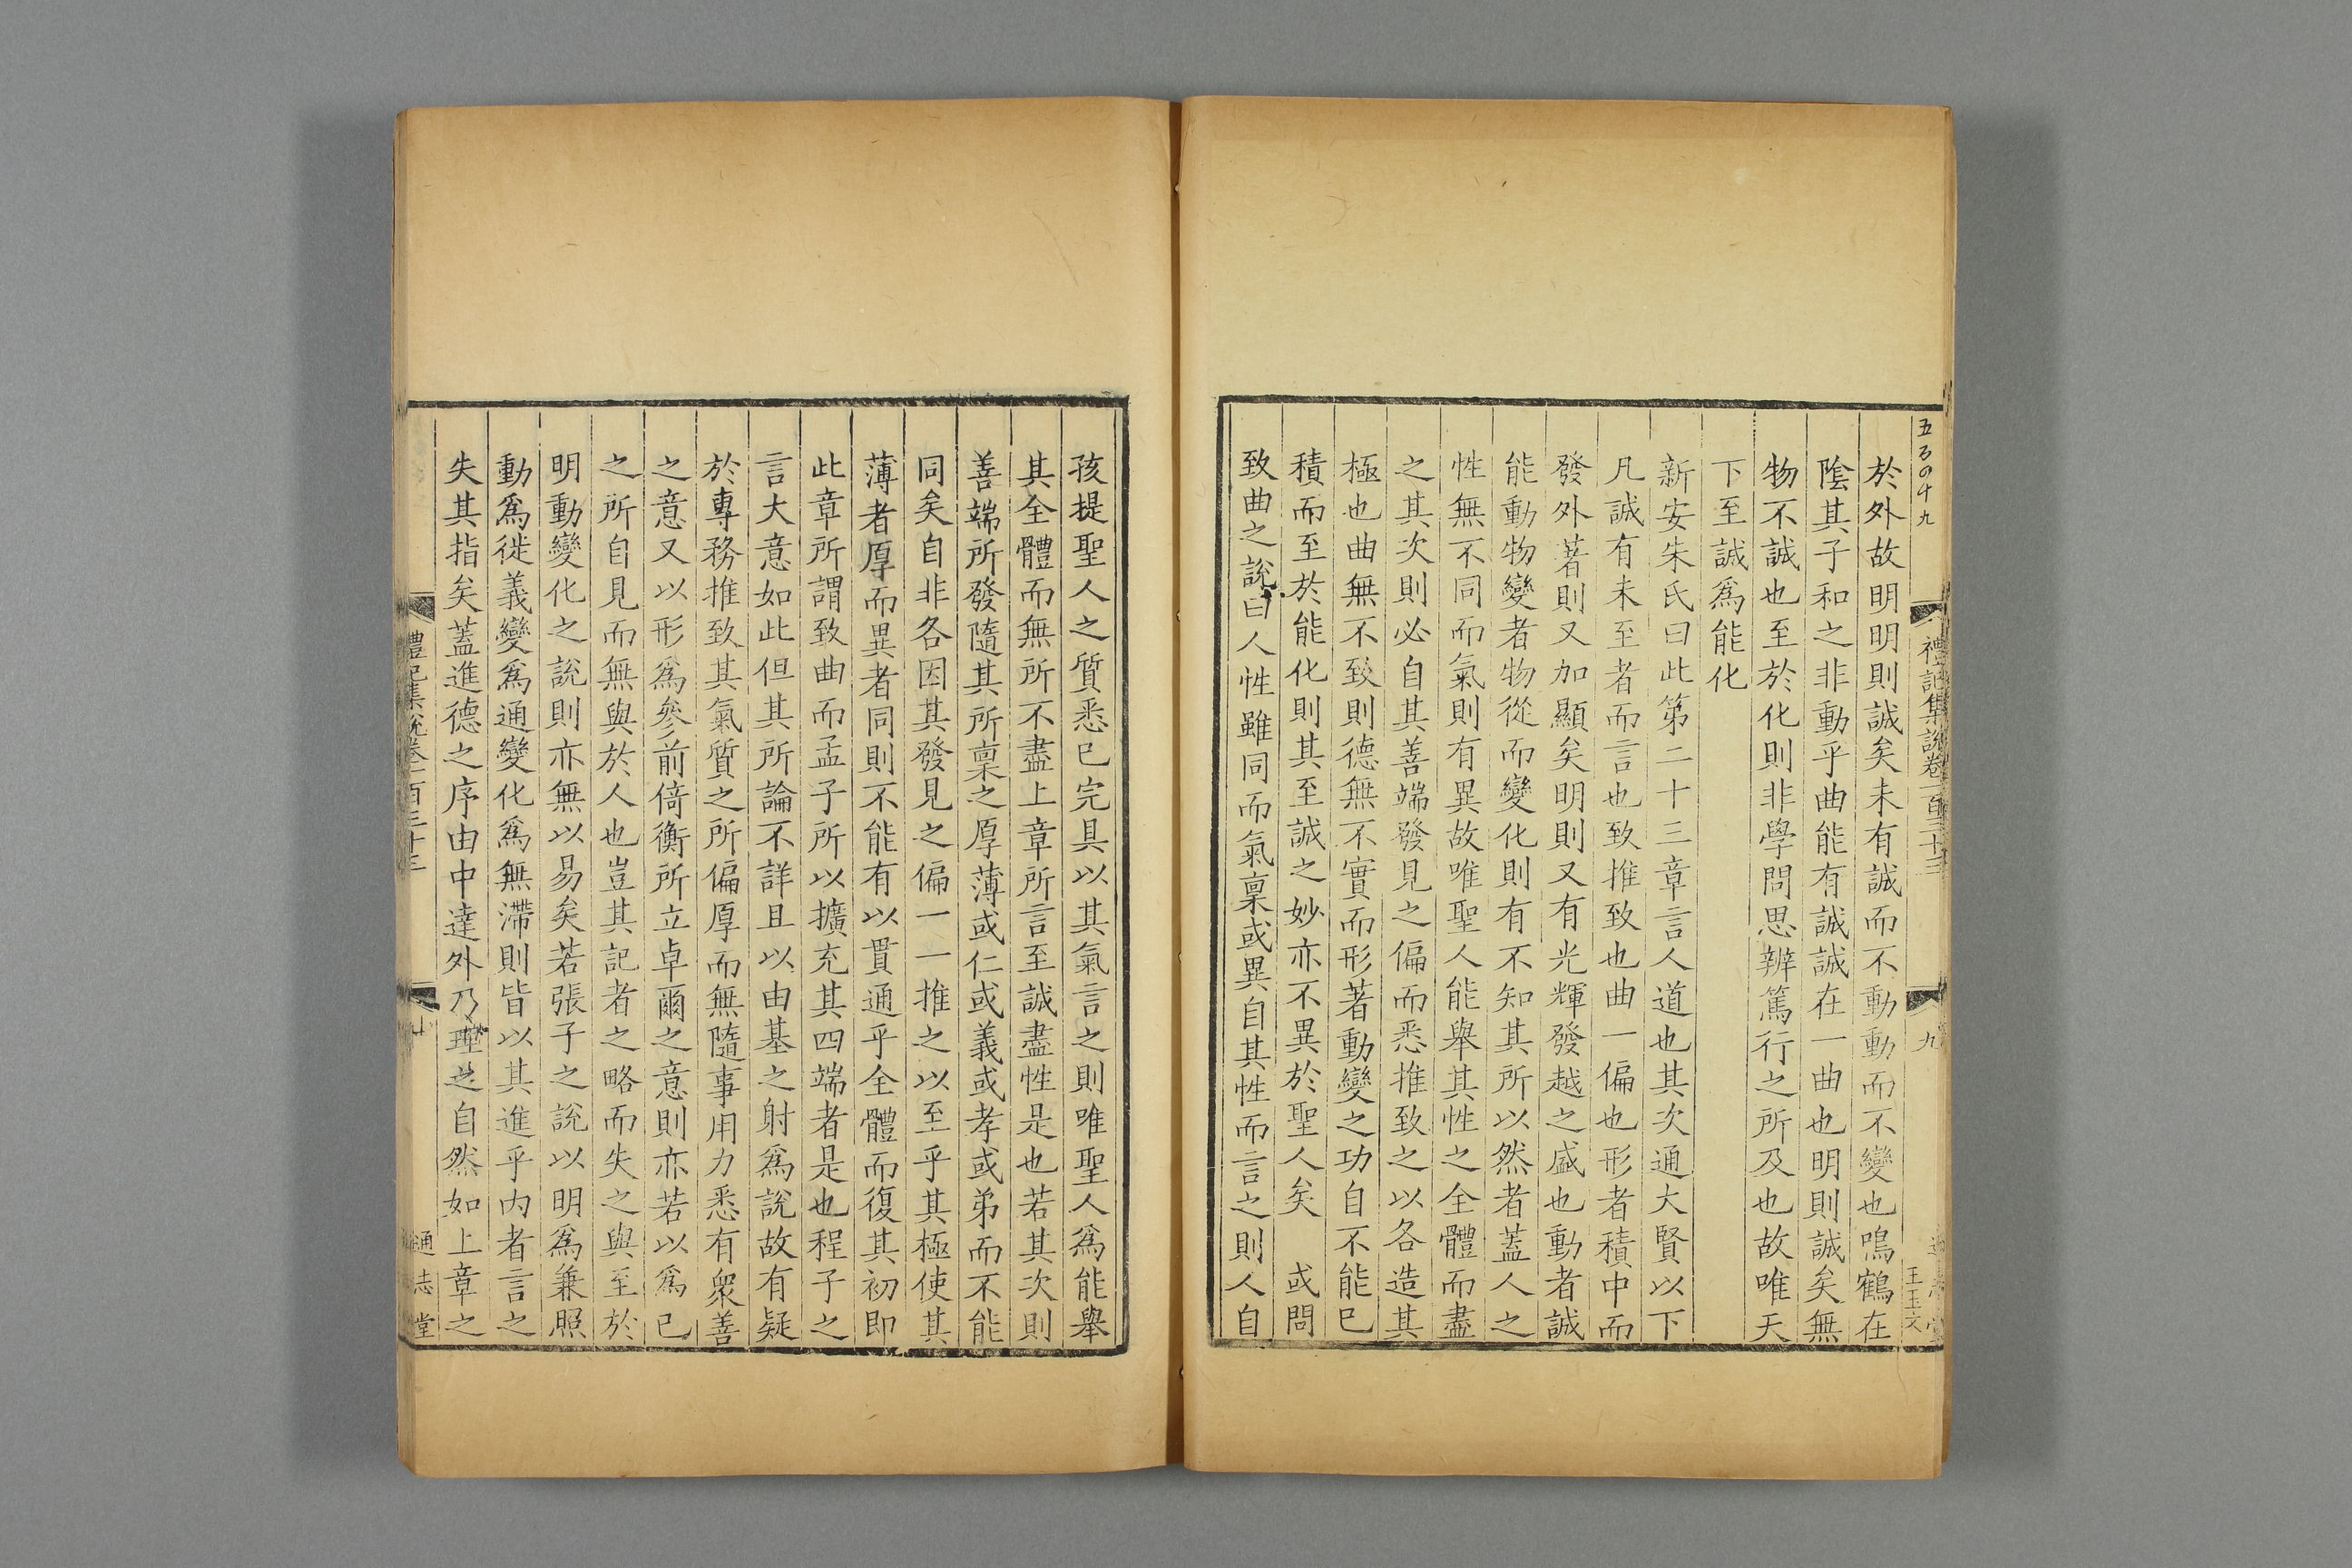 五百四十九
禮記集說卷一百三十三
九
王玉文
於外故明明則誠矣未有誠而不動動而不變也鳴鶴在
陰其子和之非動乎曲能有誠誠在一曲也明則誠矣無
物不誠也至於化則非學問思辨篤行之所及也故唯天
下至誠爲能化
新安朱氏曰此第二十三章言人道也其次通大賢以下
凡誠有未至者而言也致推致也曲一偏也形者積中而
發外著則又加顯矣明則又有光輝發越之盛也動者誠
能動物變者物從而變化則有不知其所以然者蓋人之
性無不同而氣則有異故唯聖人能舉其性之全體而盡
之其次則必自其善端發見之偏而悉推致之以各造其
極也曲無不致則德無不實而形著動變之功自不能已
積而至於能化則其至誠之妙亦不異於聖人矣 或問
致曲之說曰人性雖同而氣稟或異自其性而言之則人自
孩提聖人之質悉已完具以其氣言之則唯聖人爲能舉
其全體而無所不盡上章所言至誠盡性是也若其次則
善端所發隨其所稟之厚薄或仁或義或孝或弟而不能
同矣自非各因其發見之偏一一推之以至乎其極使其
薄者厚而異者同則不能有以貫通乎全體而復其初即
此章所謂致曲而孟子所以擴充其四端者是也程子之
言大意如此但其所論不詳且以由基之射爲說故有疑
於專務推致其氣質之所偏厚而無隨事用力悉有衆善
之意又以形爲參前倚衡所立卓爾之意則亦若以爲己
之所自見而無與於人也豈其記者之略而失之與至於
明動變化之說則亦無以易矣若張子之說以明爲兼照
動爲徙義變爲通變化爲無滯則皆以其進乎內者言之
失其指矣蓋進德之序由中達外乃理之自然如上章之
禮記集說卷一百三十三
廿
通志堂